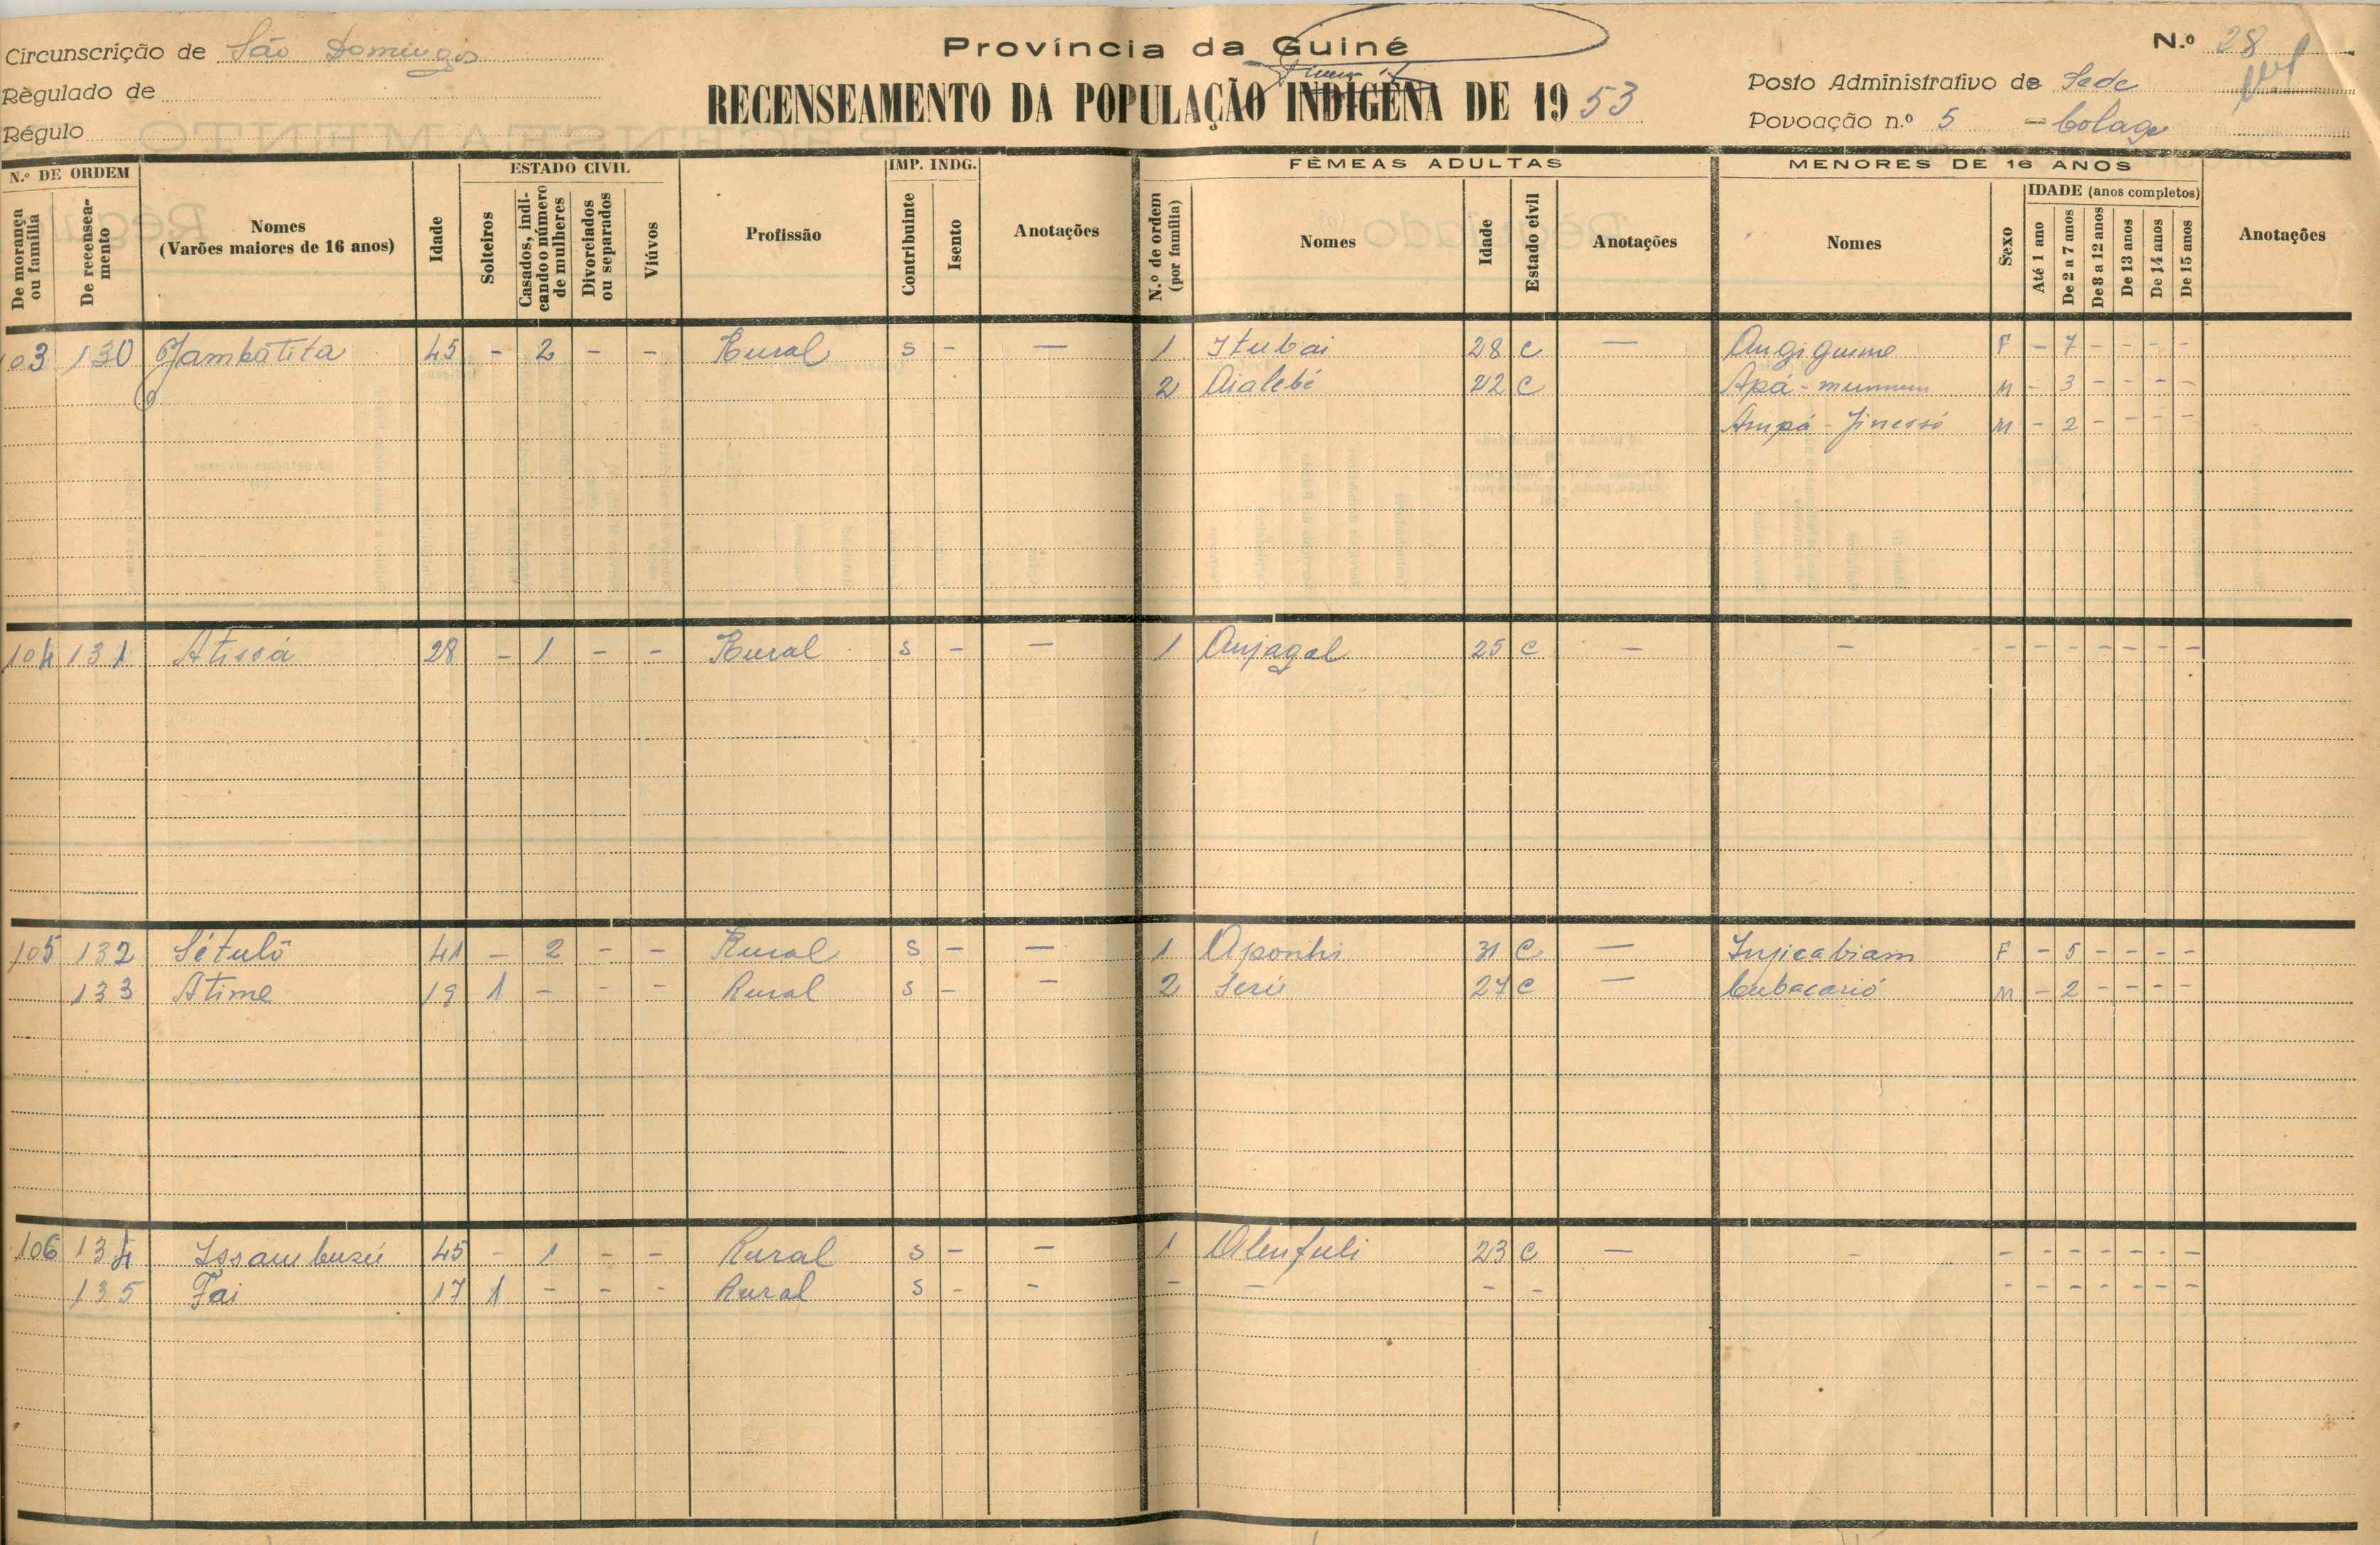 Circunscrição de São Domingos
Província da Guiné
N.º 28
Règulado de
RECENSEAMENTO DA POPULAÇÃO INDÍGENA DE 1953
Posto Administrativo de Sede
Régulo
Povoação n.º 5 - Colage
N.º DE ORDEM
ESTADO CIVIL
IMP. INDG.
FÊMEAS ADULTAS
MENORES DE 16 ANOS
De morança ou família
De recenseamento
Nomes (Varões maiores de 16 anos)
Idade
Solteiros
Casados, indicando o número de mulheres
Divorciados ou separados
Viúvos
Profissão
Contribuinte
Isento
Anotações
N.º de ordem (por família)
Nomes
Idade
Estado civil
Anotações
Nomes
Sexo
IDADE (anos completos)
Até 1 ano
De 2 a 7 anos
De 8 a 12 anos
De 13 anos
De 14 anos
De 15 anos
Anotações
103 130 Jambatita 45 - 2 - - Rural S - - 1 Itubai 28 C - Angigume F - 7 - - - -
2 Aialebé 22 C Apá- M - 3 - - - -
Ampá - Jinessó M - 2 - - - -
104 131 Atissá 28 - 1 - - Rural S - - 1 Anjagal 25 C - - - - - - - - -
105 132 Sétulô 41 - 2 - - Rural S - - 1 Aponhi 31 C - Injicabiam F - 5 - - - -
133 Atime 19 1 - - - Rural S - - 2 27 C - Cubacarió M - 2 - - - -
106 134 Issambuzé 45 - 1 - - Rural S - - 1 Alenfuli 23 C - - - - - - - - -
135 Fai 17 1 - - - Rural S - - - - - - - - - - - - -